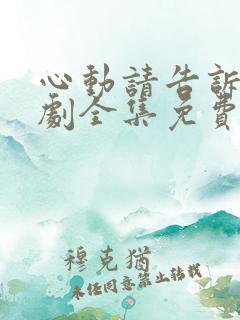 心動請告訴
劇全集免費
穆克猶
未经同意禁止转载